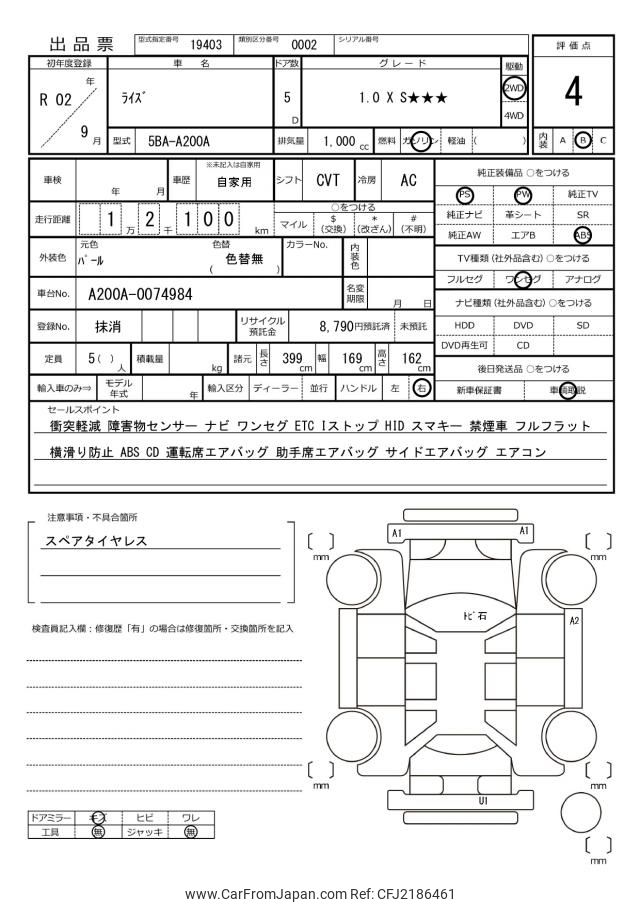 出品票 型式指定番号 19403 類別区分番号 0002 シリアル番号
評価点
4
内装 A B C
初年度登録 車名 ドア数 グレード 駆動
R 02 年 9 月
ﾗｲｽﾞ
5 D
1.0 X S★★★
2WD
4WD
型式 5BA-A200A 排気量 1,000 cc 燃料 ガソリン 軽油 ( )
車検 年 月 車歴 ※未記入は自家用 自家用 シフト CVT 冷房 AC
走行距離 1 2 万 千 1 0 0 km
○をつける
マイル $ (交換) * (改ざん) # (不明)
外装色 元色 ﾊﾟｰﾙ 色替 ( 色替無 ) カラーNo. 内装色
車台No. A200A-0074984 名変期限 月 日
登録No. 抹消 リサイクル預託金 8,790円預託済 未預託
定員 5( ) 人 積載量 kg 諸元 長さ 399 cm 幅 169 cm 高さ 162 cm
輸入車のみ⇒ モデル年式 年 輸入区分 ディーラー 並行 ハンドル 左 右
純正装備品 ○をつける
PS PW 純正TV
純正ナビ 革シート SR
純正AW エアB ABS
TV種類 (社外品含む) ○をつける
フルセグ ワンセグ アナログ
ナビ種類 (社外品含む) ○をつける
HDD DVD SD
DVD再生可 CD
後日発送品 ○をつける
新車保証書 車輌取説
セールスポイント
衝突軽減 障害物センサー ナビ ワンセグ ETC Iストップ HID スマキー 禁煙車 フルフラット
横滑り防止 ABS CD 運転席エアバッグ 助手席エアバッグ サイドエアバッグ エアコン
注意事項・不具合箇所
スペアタイヤレス
検査員記入欄：修復歴「有」の場合は修復箇所・交換箇所を記入
ドアミラー キズ ヒビ ワレ
工具 無 ジャッキ 無
A1 A1
mm mm
ﾄﾋﾞ石
A2
mm mm
U1
mm
www.CarFromJapan.com Ref: CFJ2186461